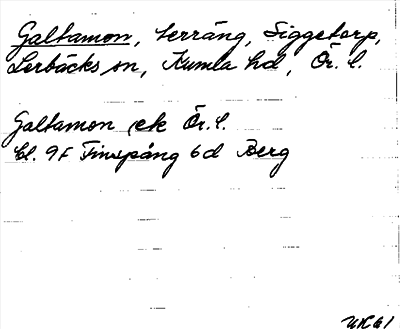 Galtamon, terräng, Siggetorp,
Lerbäcks sn, Kumla hd, Ör. l.
Galtamon ek Ör. l.
bl. 9F Finspång 6d Berg